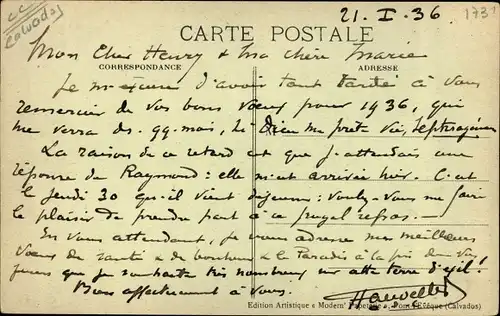 CC
Calvados
21. I. 36
173
CARTE POSTALE
Mon Cher Henry & Ma chère Marie
CORRESPONDANCE ADRESSE
Je m'excuse d'avoir tant tardé à vous
remercier de vos bons vœux pour 1936, qui
me verra ds. qq. mois, si Dieu me prête vie, septuagénaire
La raison de ce retard est que j'attendais une
réponse de Raymond : elle m'est arrivée hier. C'est
le Jeudi 30 qu'il vient déjeuner : voulez-vous me faire
le plaisir de prendre part à ce frugal repas. —
En vous attendant, je vous adresse mes meilleurs
vœux de santé & de bonheur & le Paradis à la fin de vos
jours que je souhaite très nombreux sur cette terre d'exil !
Bien affectueusement à vous.
Edition Artistique « Modern' Papeterie », Pont-l'Evêque (Calvados)